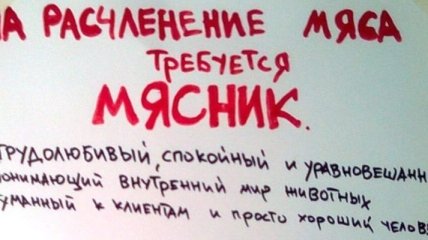 НА РАСЧЛЕНЕНИЕ МЯСА
ТРЕБУЕТСЯ
МЯСНИК.
ТРУДОЛЮБИВЫЙ, СПОКОЙНЫЙ И УРАВНОВЕШАНН
ПОНИМАЮЩИЙ ВНУТРЕННИЙ МИР ЖИВОТНЫХ
УМАННЫЙ К КЛИЕНТАМ И ПРОСТО ХОРОШИЙ ЧЕЛОВ